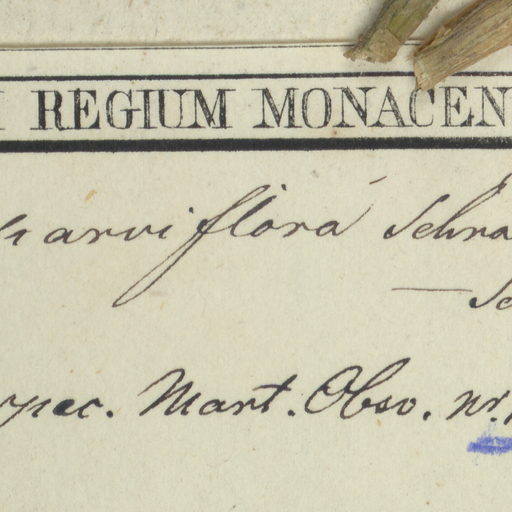 REGIUM MONACEN
parviflora Schra
spec. Mart. Obsv. nr.